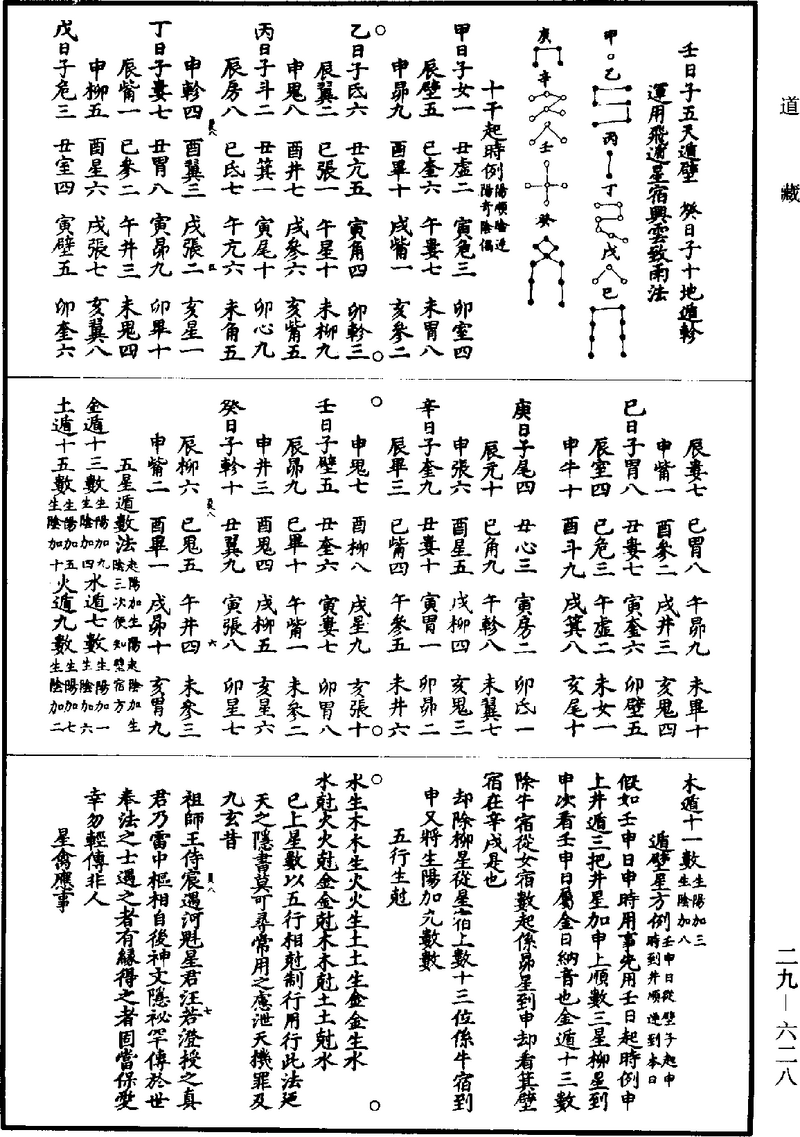 道藏
壬日子五天遁壁　癸日子十地遁軫
運用飛遁星宿興雲致雨法
甲　乙　丙　丁　戊　己
庚　辛　壬　癸
十干起時例陽順陰逆陽奇陰偶
甲日子女一　丑虛二　寅危三　卯室四
辰壁五　巳奎六　午婁七　未胃八
申昴九　酉畢十　戌觜一　亥參二
乙日子氐六　丑亢五　寅角四　卯軫三
辰翼二　巳張一　午星十　未柳九
申鬼八　酉井七　戌參六　亥觜五
丙日子斗二　丑箕一　寅尾十　卯心九
辰房八　巳氐七　午亢六　未角五
申軫四　酉翼三　戌張二　亥星一
丁日子婁七　丑胃八　寅昴九　卯畢十
辰觜一　巳參二　午井三　未鬼四
申柳五　酉星六　戌張七　亥翼八
戊日子危三　丑室四　寅壁五　卯奎六
辰婁七　巳胃八　午昴九　未畢十
申觜一　酉參二　戌井三　亥鬼四
己日子胃八　丑婁七　寅奎六　卯壁五
辰室四　巳危三　午虛二　未女一
申牛十　酉斗九　戌箕八　亥尾十
庚日子尾四　丑心三　寅房二　卯氐一
辰元十　巳角九　午軫八　未翼七
申張六　酉星五　戌柳四　亥鬼三
辛日子奎九　丑婁十　寅胃一　卯昴二
辰畢三　巳觜四　午參五　未井六
申鬼七　酉柳八　戌星九　亥張十
壬日子壁五　丑奎六　寅婁七　卯胃八
辰昴九　巳畢十　午觜一　未參二
申井三　酉鬼四　戌柳五　亥星六
癸日子軫十　丑翼九　寅張八　卯星七
辰柳六　巳鬼五　午井四　未參三
申觜二　酉畢一　戌昴十　亥胃九
五星遁數法起陽加生陽起陰加生陰三次便知壁宿方
金遁十三數生陽加九生陰加四水遁七數生陽加一生陰加六
土遁十五數生陽加五生陰加十火遁九數生陽加七生陰加二
木遁十一數生陽加三生陰加八
遁壁星方例壬申日從壁子起申時到井順逆到本日
假如壬申日申時用事先用壬日起時例申
上井遁三把井星加申上順數三星柳星到
申次看壬申日屬金日納音也金遁十三數
除牛宿從女宿數起係昴星到申却看箕壁
宿在辛戌是也
却除柳星從星宿上數十三位係牛宿到
申又將生陽加九數數
五行生尅
水生木木生火火生土土生金金生水
水尅火火尅金金尅木木尅土土尅水
已上星數以五行相尅制行用行此法廼
天之隱書莫可尋常用之慮泄天機罪及
九玄昔
祖師王侍宸遇河魁星君汪若澄授之真
君乃雷中樞相自後神文隱祕罕傳於世
奉法之士遇之者有緣得之者固當保愛
幸勿輕傳非人
星禽應事
二九—六二八